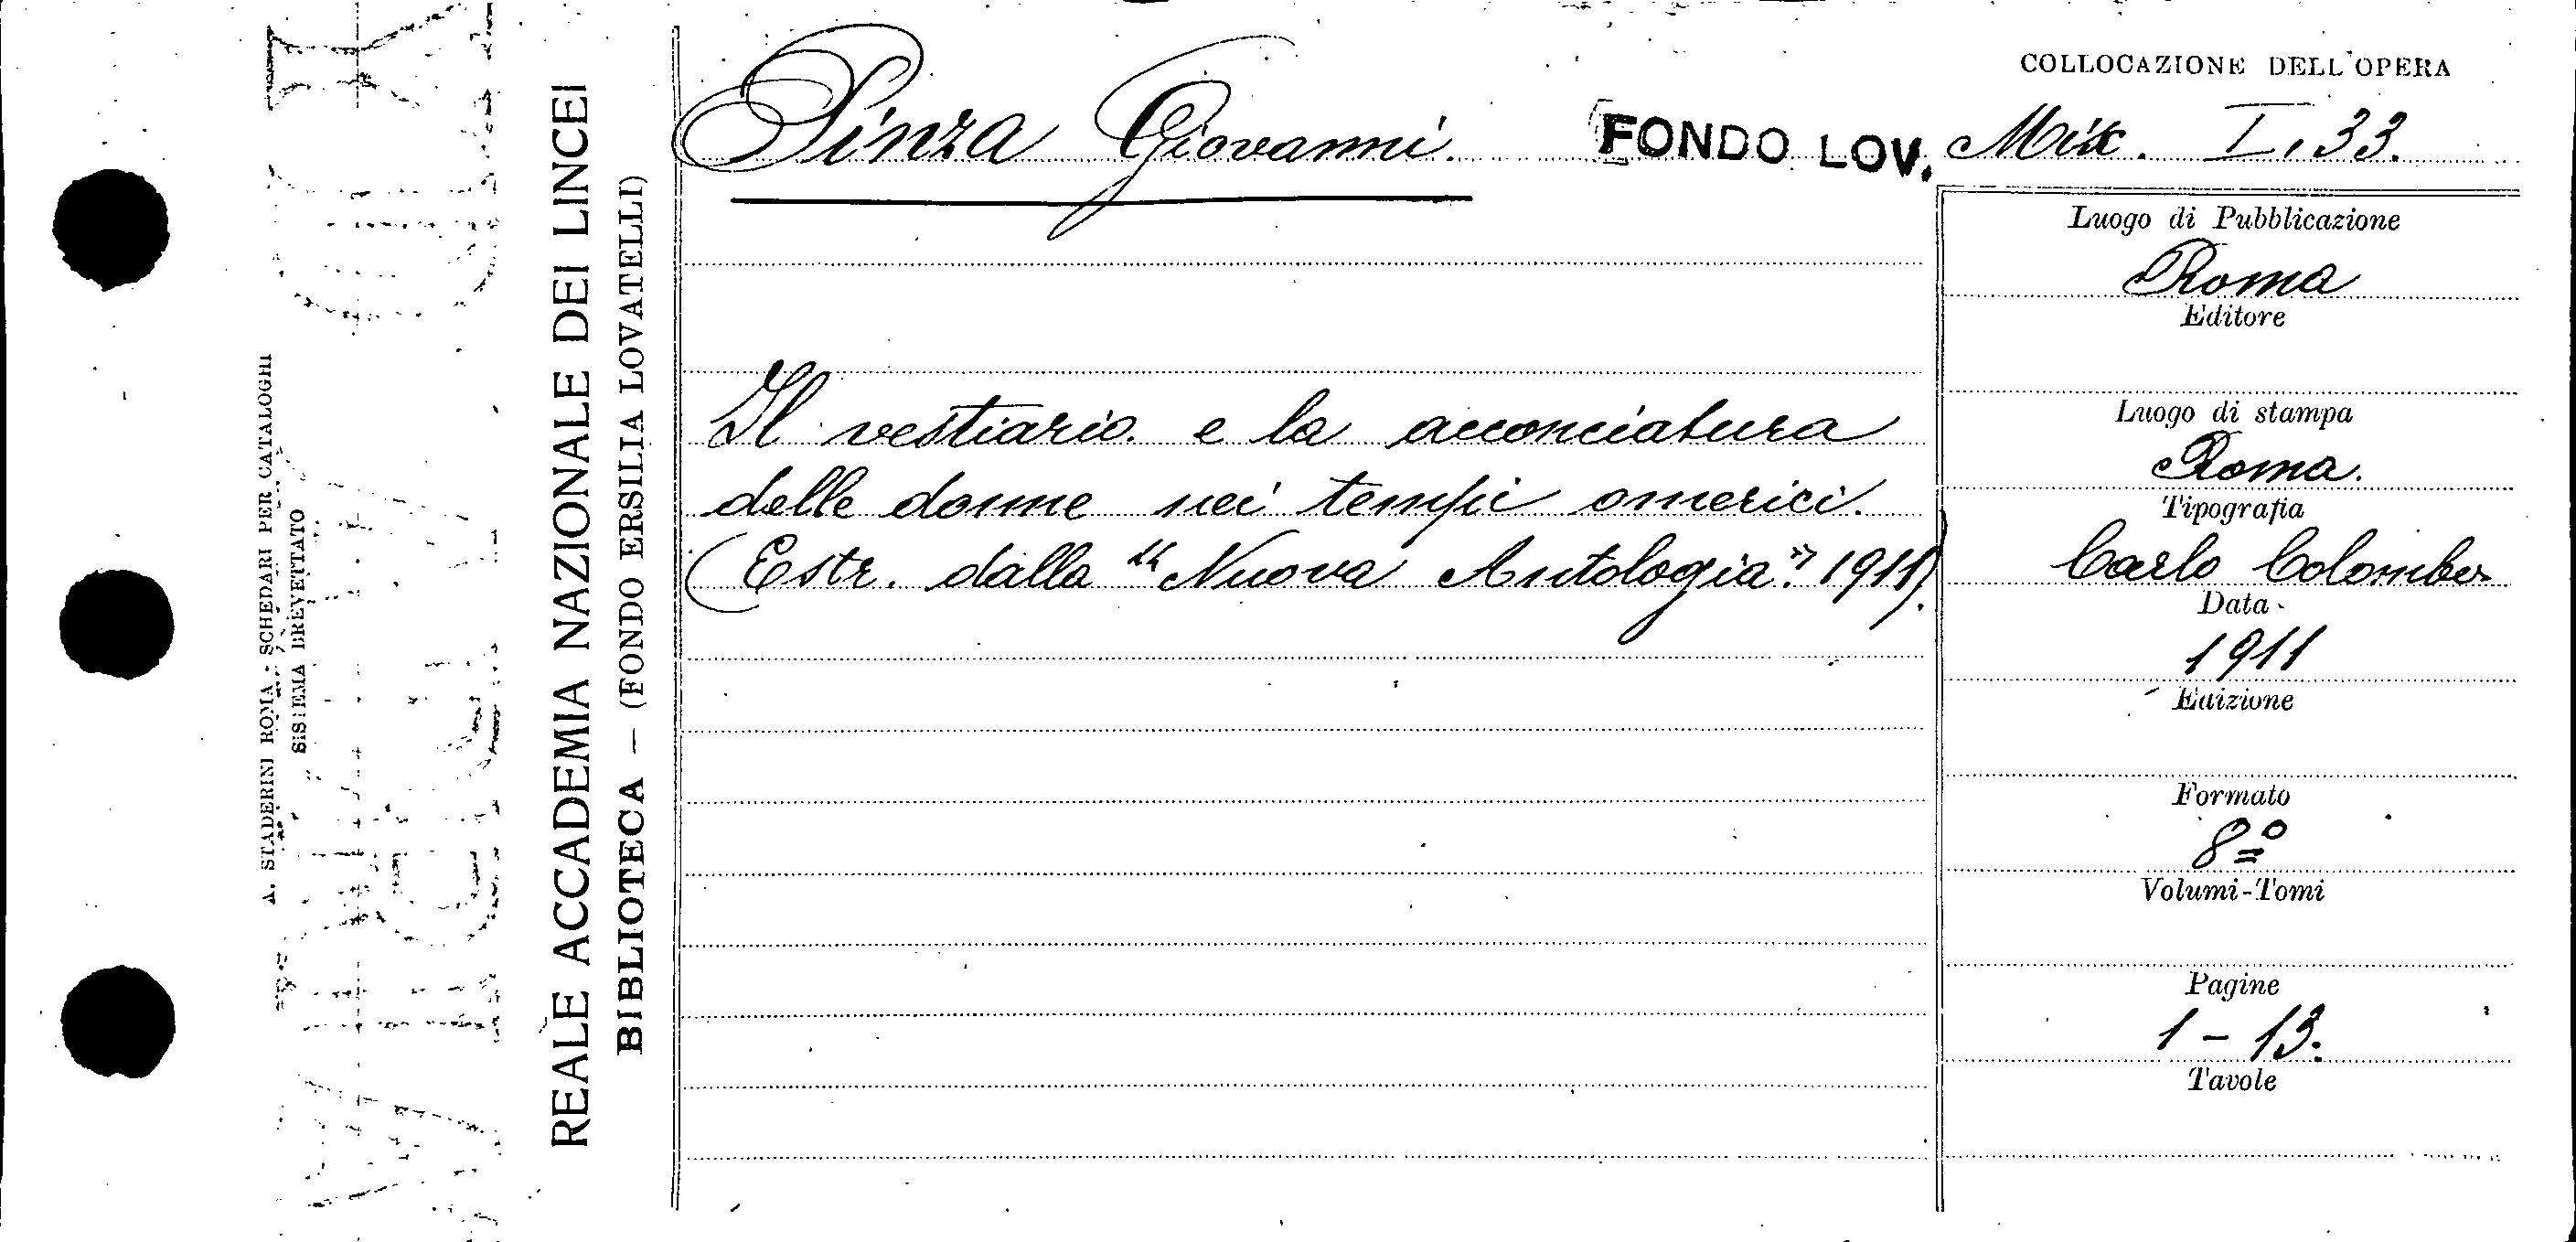 A. STADERINI ROMA - SCHEDARI PER CATALOGHI
SISTEMA BREVETTATO
REALE ACCADEMIA NAZIONALE DEI LINCEI
BIBLIOTECA — (FONDO ERSILIA LOVATELLI)
Pinza Giovanni.
Il vestiario e la acconciatura
delle donne nei tempi omerici.
(Estr. dalla "Nuova Antologia" 1911).
FONDO LOV.
COLLOCAZIONE DELL'OPERA
Mix. I, 33.
Luogo di Pubblicazione
Roma
Editore
Luogo di stampa
Roma.
Tipografia
Carlo Colombo
Data
1911
Edizione
Formato
8º
Volumi-Tomi
Pagine
1 - 13.
Tavole